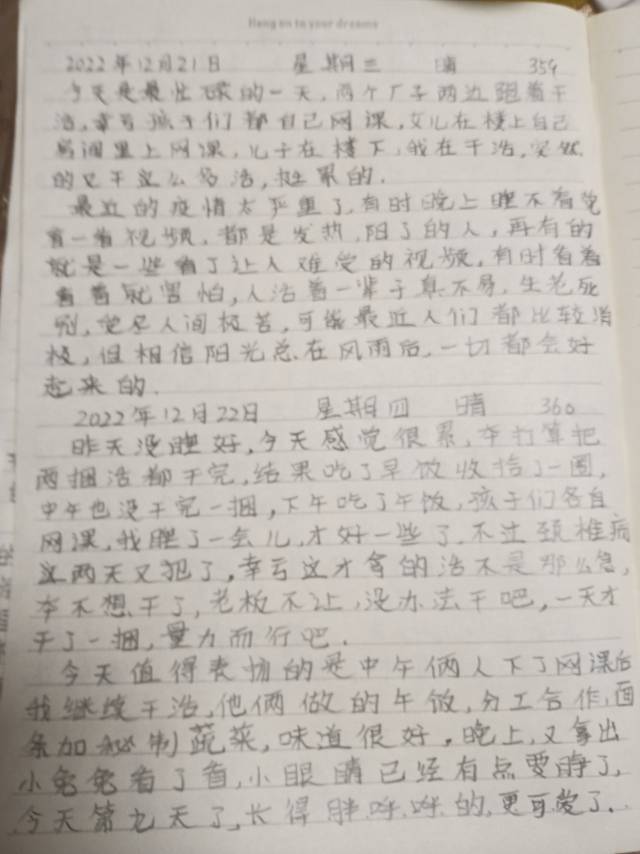 Hang on to your dreams
2022年12月21日 星期三 晴 359
今天是最忙碌的一天,两个厂子两边跑着干
活,幸亏孩子们都自己网课,女儿在楼上自己
房间里上网课,儿子在楼下,我在干活,突然
的又干这么多活,挺累的.
最近的疫情太严重了,有时晚上睡不着觉
看一看视频,都是发热,阳了的人,再有的
就是一些看了让人难受的视频,有时看着
看着就害怕,人活着一辈子真不易,生老死
别,受尽人间极苦,可能最近人们都比较消
极,但相信阳光总在风雨后,一切都会好
起来的.
2022年12月22日 星期四 晴 360
昨天没睡好,今天感觉很累,本打算把
两捆活都干完,结果吃了早饭收拾了一圈,
中午也没干完一捆,下午吃了午饭,孩子们各自
网课,我睡了一会儿,才好一些了,不过颈椎病
这两天又犯了,幸亏这才拿的活不是那么急,
本不想干了,老板不让,没办法干吧,一天才
干了一捆,量力而行吧.
今天值得表扬的是中午俩人下了网课后
我继续干活,他俩做的午饭,分工合作,面
条加秘制蔬菜,味道很好,晚上,又拿出
小兔兔看了看,小眼睛已经有点要睁了,
今天第九天了,长得胖呼呼的,更可爱了.